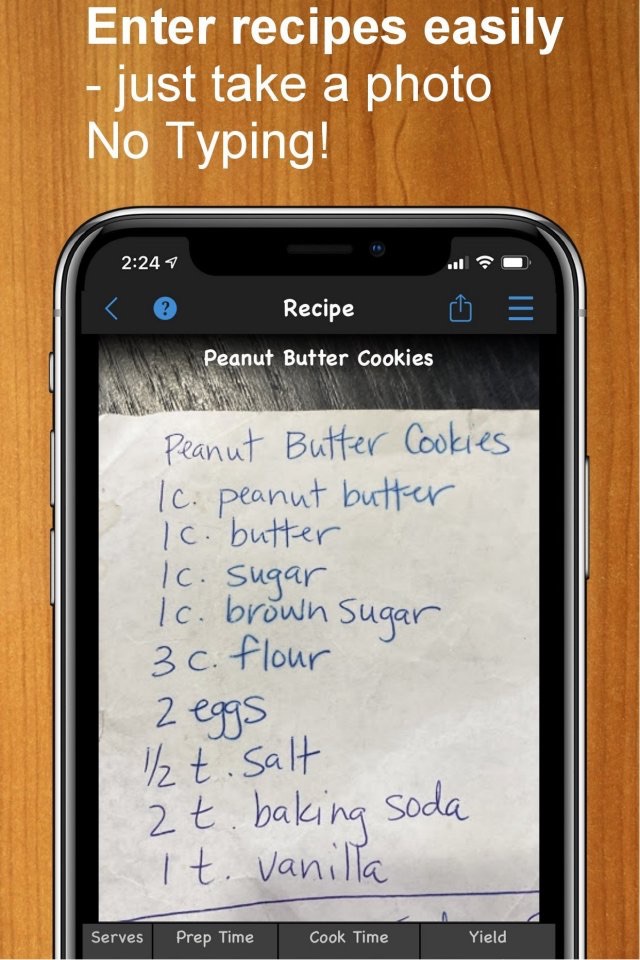 Enter recipes easily
- just take a photo
No Typing!
2:24
Recipe
Peanut Butter Cookies
Peanut Butter Cookies
1c. peanut butter
1c. butter
1c. sugar
1c. brown sugar
3 c. flour
2 eggs
1/2 t. salt
2 t. baking soda
1 t. vanilla
Serves Prep Time Cook Time Yield